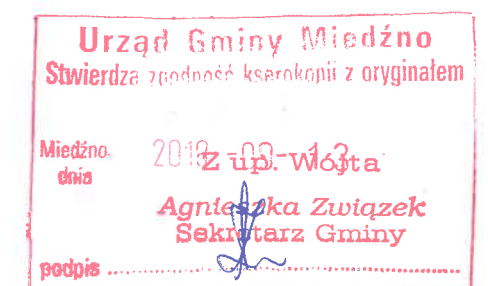 Urząd Gminy Miedźno
Stwierdza zgodność kserokopii z oryginałem
Miedźno
dnia
Z up. Wójta
Agnieszka Związek
Sekretarz Gminy
podpis